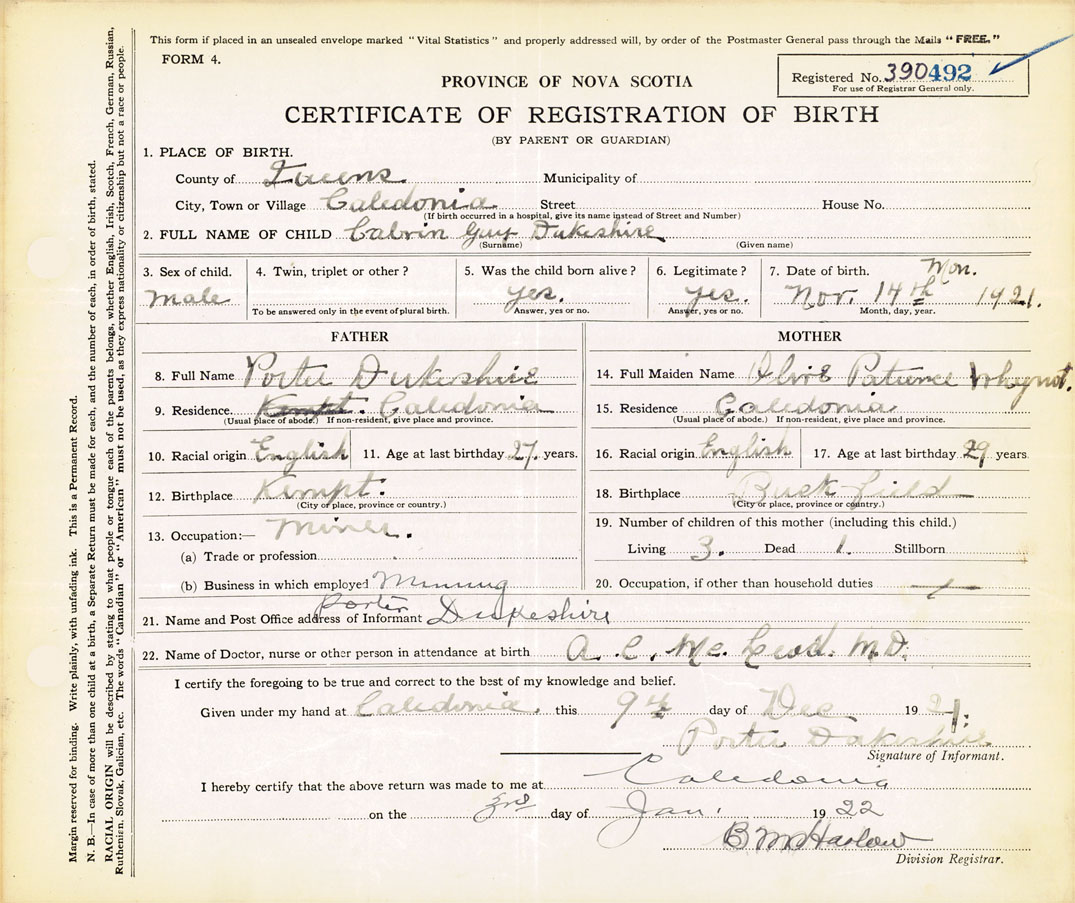 This form if placed in an unsealed envelope marked "Vital Statistics" and properly addressed will, by order of the Postmaster General pass through the Mails "FREE."
FORM 4.
Registered No. 390492
For use of Registrar General only.
PROVINCE OF NOVA SCOTIA
CERTIFICATE OF REGISTRATION OF BIRTH
(BY PARENT OR GUARDIAN)
1. PLACE OF BIRTH.
County of Queens Municipality of
City, Town or Village Caledonia Street House No.
(If birth occurred in a hospital, give its name instead of Street and Number)
2. FULL NAME OF CHILD Calvin Guy Dukeshire
(Surname) (Given name)
3. Sex of child. 4. Twin, triplet or other? 5. Was the child born alive? 6. Legitimate? 7. Date of birth. Mon.
Male yes. yes. Nov. 14th 1921.
To be answered only in the event of plural birth. Answer, yes or no. Answer, yes or no. Month, day, year.
FATHER
8. Full Name Porter Dukeshire
9. Residence. Kempt. Caledonia
(Usual place of abode.) If non-resident, give place and province.
10. Racial origin English 11. Age at last birthday 27. years.
12. Birthplace Kempt.
(City or place, province or country.)
13. Occupation:— Miner.
(a) Trade or profession
(b) Business in which employed Minning
MOTHER
14. Full Maiden Name Patience Whynot.
15. Residence Caledonia
(Usual place of abode.) If non-resident, give place and province.
16. Racial origin English 17. Age at last birthday 29 years
18. Birthplace Buckfield
(City or place, province or country.)
19. Number of children of this mother (including this child.)
Living 3. Dead 1. Stillborn
20. Occupation, if other than household duties
21. Name and Post Office address of Informant Porter Dukeshire
22. Name of Doctor, nurse or other person in attendance at birth A. C. Mc. Leod. M.D.
I certify the foregoing to be true and correct to the best of my knowledge and belief.
Given under my hand at Caledonia. this 9th day of Dec 1921.
Porter Dukeshire
Signature of Informant.
I hereby certify that the above return was made to me at Caledonia
on the 3rd day of Jan. 1922
Harlow
Division Registrar.
Margin reserved for binding. Write plainly, with unfading ink. This is a Permanent Record.
N. B.—In case of more than one child at a birth, a Separate Return must be made for each, and the number of each, in order of birth, stated.
RACIAL ORIGIN will be described by stating to what people or tongue each of the parents belongs, whether English, Irish, Scotch, French, German, Russian,
Ruthenian, Slovak, Galician, etc. The words "Canadian" or "American" must not be used, as they express nationality or citizenship but not a race or people.